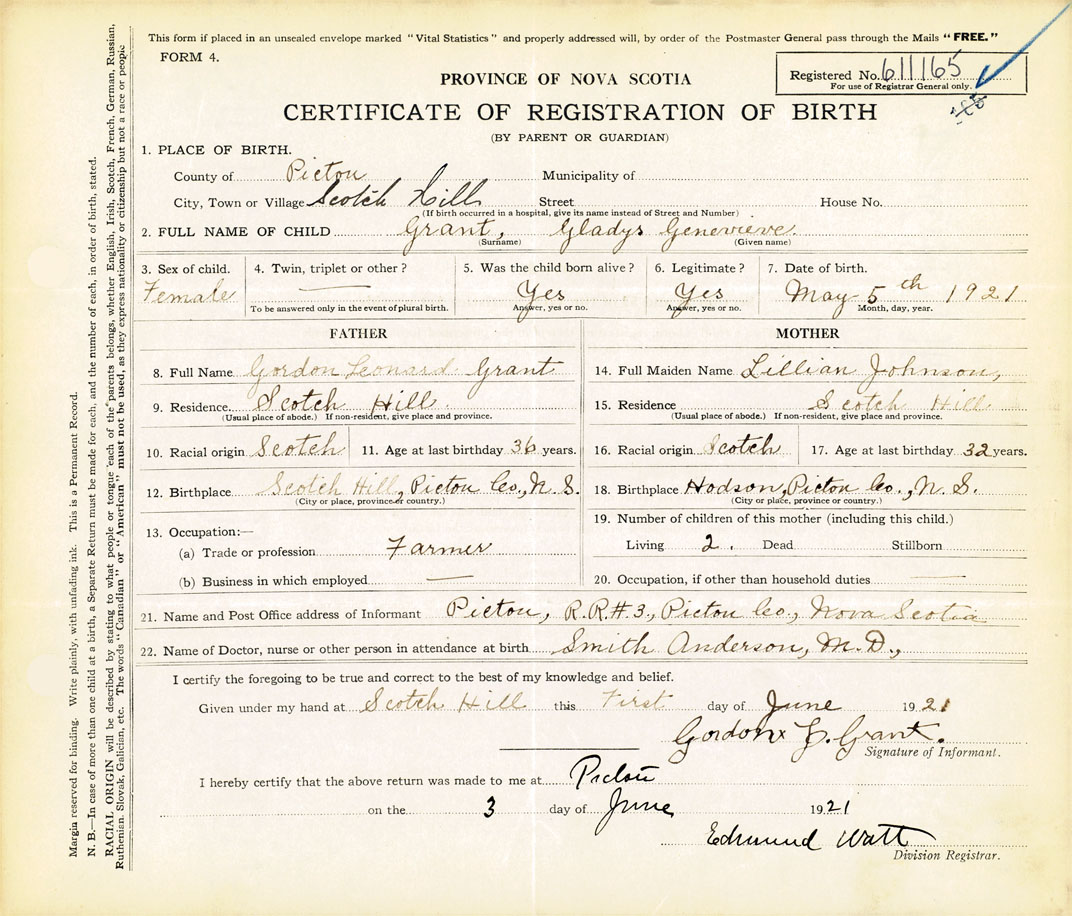 This form if placed in an unsealed envelope marked "Vital Statistics" and properly addressed will, by order of the Postmaster General pass through the Mails "FREE."
FORM 4.
Registered No. 611165
For use of Registrar General only.
PROVINCE OF NOVA SCOTIA
CERTIFICATE OF REGISTRATION OF BIRTH
(BY PARENT OR GUARDIAN)
1. PLACE OF BIRTH.
County of Pictou Municipality of
City, Town or Village Scotch Hill Street House No.
(If birth occurred in a hospital, give its name instead of Street and Number)
2. FULL NAME OF CHILD Grant, Gladys Genevieve.
(Surname) (Given name)
3. Sex of child. 4. Twin, triplet or other? 5. Was the child born alive? 6. Legitimate? 7. Date of birth.
Female Yes Yes May 5th 1921
To be answered only in the event of plural birth. Answer, yes or no. Answer, yes or no. Month, day, year.
FATHER
8. Full Name Gordon Leonard Grant
9. Residence Scotch Hill.
(Usual place of abode.) If non-resident, give place and province.
10. Racial origin Scotch 11. Age at last birthday 36 years.
12. Birthplace Scotch Hill, Pictou Co., N. S.
(City or place, province or country.)
13. Occupation:—
(a) Trade or profession Farmer
(b) Business in which employed —
MOTHER
14. Full Maiden Name Lillian Johnson,
15. Residence Scotch Hill
(Usual place of abode.) If non-resident, give place and province.
16. Racial origin Scotch 17. Age at last birthday 32 years.
18. Birthplace Hodson, Pictou Co., N. S.
(City or place, province or country.)
19. Number of children of this mother (including this child.)
Living 2. Dead Stillborn
20. Occupation, if other than household duties —
21. Name and Post Office address of Informant Pictou, R.R.#3, Pictou Co., Nova Scotia
22. Name of Doctor, nurse or other person in attendance at birth Smith Anderson, M.D.,
I certify the foregoing to be true and correct to the best of my knowledge and belief.
Given under my hand at Scotch Hill this First day of June 1921
Gordon L. Grant.
Signature of Informant.
I hereby certify that the above return was made to me at Pictou
on the 3 day of June 1921
Edmund Watt
Division Registrar.
Margin reserved for binding. Write plainly, with unfading ink. This is a Permanent Record.
N. B.—In case of more than one child at a birth, a Separate Return must be made for each, and the number of each, in order of birth, stated.
RACIAL ORIGIN will be described by stating to what people or tongue each of the parents belongs, whether English, Irish, Scotch, French, German, Russian,
Ruthenian, Slovak, Galician, etc. The words "Canadian" or "American" must not be used, as they express nationality or citizenship but not a race or people